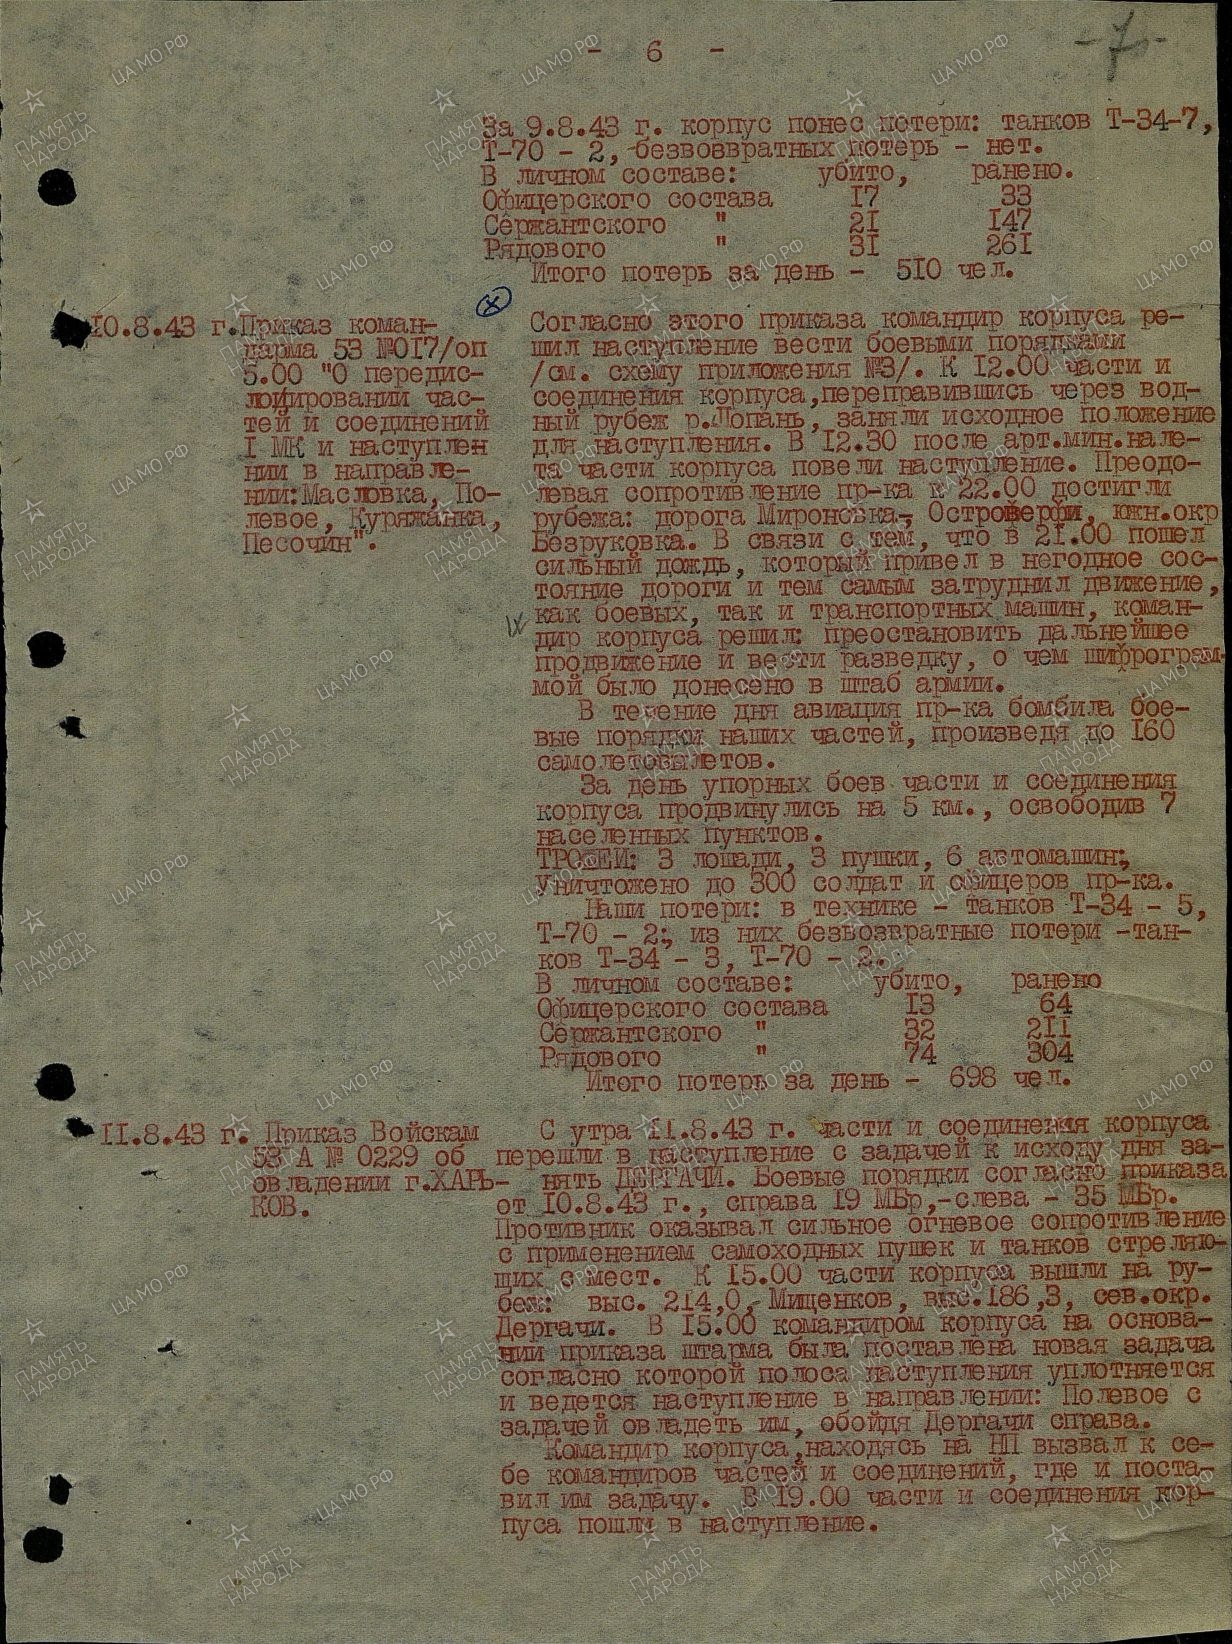 - 6 -
-7-
За 9.8.43 г. корпус понес потери: танков Т-34-7,
Т-70 - 2, безвозвратных потерь - нет.
В личном составе: убито, ранено.
Офицерского состава 17 33
Сержантского " 21 147
Рядового " 31 261
Итого потерь за день - 510 чел.
10.8.43 г. Приказ коман-
дарма 53 №017/оп
5.00 "О передис-
лоцировании час-
тей и соединений
I МК и наступлен
нии в направле-
нии: Масловка, По-
левое, Куряжанка,
Песочин".
Согласно этого приказа командир корпуса ре-
шил наступление вести боевыми порядками
/см. схему приложения №3/. К 12.00 части и
соединения корпуса, переправившись через вод-
ный рубеж р.Лопань, заняли исходное положение
для наступления. В 12.30 после арт.мин.нале-
та части корпуса повели наступление. Преодо-
левая сопротивление пр-ка к 22.00 достигли
рубежа: дорога Мироновка-, Островерфи, южн.окр
Безруковка. В связи с тем, что в 21.00 пошел
сильный дождь, который привел в негодное сос-
тояние дороги и тем самым затруднил движение,
как боевых, так и транспортных машин, коман-
дир корпуса решил: преостановить дальнейшее
продвижение и вести разведку, о чем шифрограм-
мой было донесено в штаб армии.
В течение дня авиация пр-ка бомбила бое-
вые порядки наших частей, произведя до 160
самолетовылетов.
За день упорных боев части и соединения
корпуса продвинулись на 5 км., освободив 7
населенных пунктов.
ТРОФЕИ: 3 лошади, 3 пушки, 6 автомашин;
Уничтожено до 300 солдат и офицеров пр-ка.
Наши потери: в технике - танков Т-34 - 5,
Т-70 - 2; из них безвозвратные потери -тан-
ков Т-34 - 3, Т-70 - 2.
В личном составе: убито, ранено
Офицерского состава 13 64
Сержантского " 32 211
Рядового " 74 304
Итого потерь за день - 698 чел.
11.8.43 г. Приказ Войскам
53 А № 0229 об
овладении г.ХАРЬ-
КОВ.
С утра 11.8.43 г. части и соединения корпуса
перешли в наступление с задачей к исходу дня за-
нять ДЕРГАЧИ. Боевые порядки согласно приказа
от 10.8.43 г., справа 19 МБр,-слева - 35 МБр.
Противник оказывал сильное огневое сопротивление
с применением самоходных пушек и танков стреляю-
щих с мест. К 15.00 части корпуса вышли на ру-
беж: выс. 214,0,- Мищенков, выс.186,3, сев.окр.
Дергачи. В 15.00 командиром корпуса на основа-
нии приказа штарма была поставлена новая задача
согласно которой полоса наступления уплотняется
и ведется наступление в направлении: Полевое с
задачей овладеть им, обойдя Дергачи справа.
Командир корпуса, находясь на НП вызвал к се-
бе командиров частей и соединений, где и поста-
вил им задачу. В 19.00 части и соединения кор-
пуса пошли в наступление.